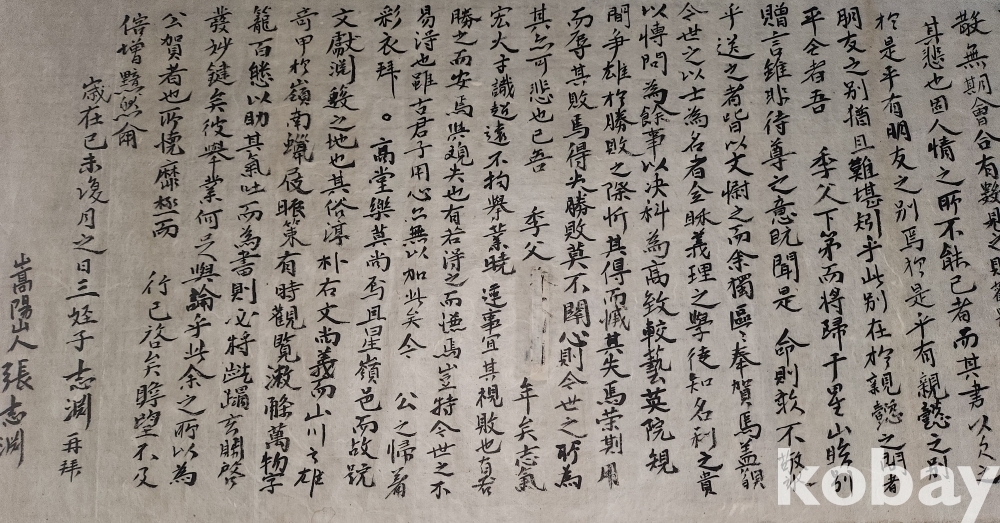 散無期會合有數是之
其悲也固人情之所不能已者而其書以久
於是乎有朋友之別焉於是乎有親懿之別
朋友之別猶且難堪矧乎此別在於親懿之間者
乎今者吾 季父下第而將歸于星山臨別
贈言雖非待尊之意旣聞是 命則敢不敬
乎送之者皆以文慰之而余獨區區奉賀焉盖
今世之以士為名者全昧義理之學徒知名利之貴
以傳問為餘事以決科為高致較藝英院規
間爭雄於勝敗之際忻其得而慽其失焉榮其用
而辱其敗焉得失勝敗莫不關心則今世之所為
其亦可悲也已吾 季父 年矣志氣
宏大才識超遠不拘擧業曉 運事宜其視敗也有若
勝之而安焉與覩失也有若得之而謙焉豈特今世之不
易得也雖古君子用心亦無以加此矣今 公之歸着
彩衣拜 高堂樂莫尚焉且星嶺邑而故號
文獻淵藪之地也其俗淳朴右文尚義而山川之雄
奇甲於嶺南蠟屐眠策有時觀覽漱滌萬物
籠百態以助其氣吐而為書則必將 躝玄關啓
發妙鍵矣彼擧業何足與論乎此余之所以為
公賀者也所懷靡極而 行已啓矣瞻望不及
倍增黯然爾
歲在己未復月之日三姪子志淵再拜
嵩陽山人張志淵
kobay